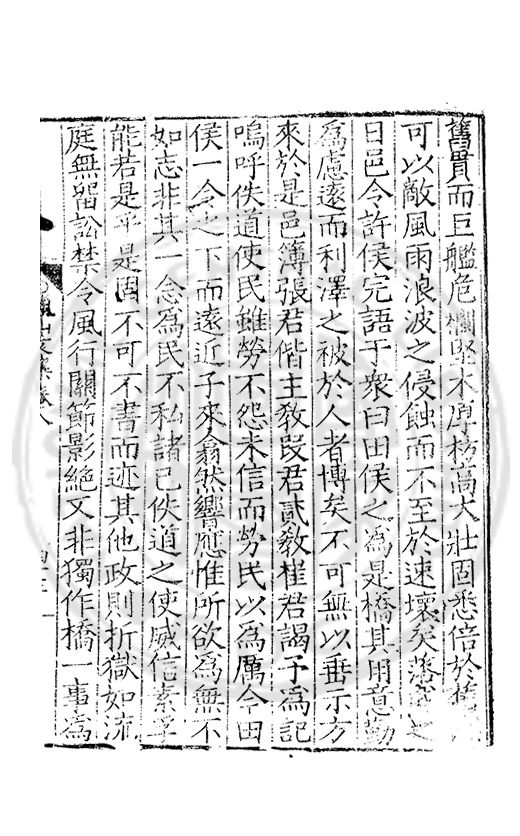 舊貫而巨艦危欄堅木厚枋高大壯固悉倍於舊
可以敵風雨浪波之侵蝕而不至於速壞矣落成之
日邑令許侯完語于衆曰田侯之為是橋其用意勤
為慮遠而利澤之被於人者博矣不可無以垂示方
來於是邑簿張君偕主教段君貳教崔君謁予為記
嗚呼佚道使民雖勞不怨未信而勞民以為厲今田
侯一令之下而遠近子來翕然響應惟所欲為無不
如志非其一念為民不私諸己佚道之使威信素孚
能若是乎是固不可不書而迹其他政則折獄如流
庭無留訟禁令風行關節影絕又非獨作橋一事為